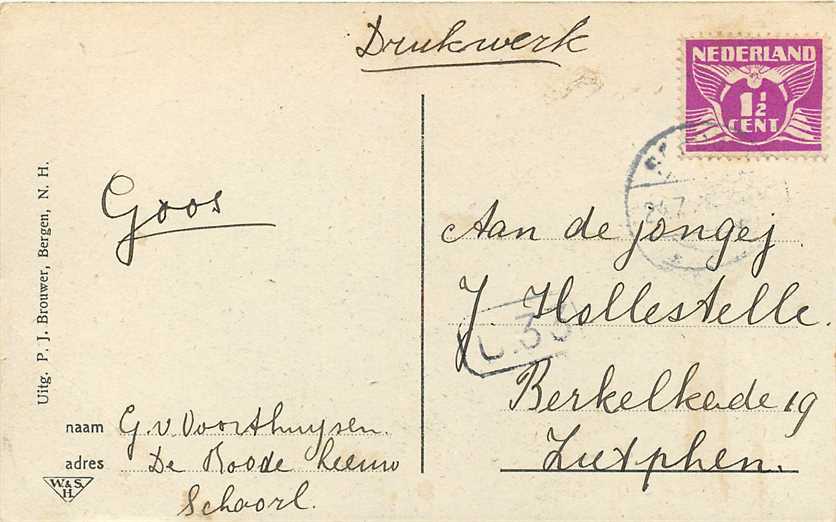 Drukwerk
NEDERLAND
1½
CENT
Goos
Aan de jongej.
J. Hollestelle.
Berkelkade 19
Zutphen.
L.33
Uitg. P. J. Brouwer, Bergen, N. H.
naam G. v. Voorthuysen.
adres De Roode Leeuw
Schoorl.
W.& S.
H.